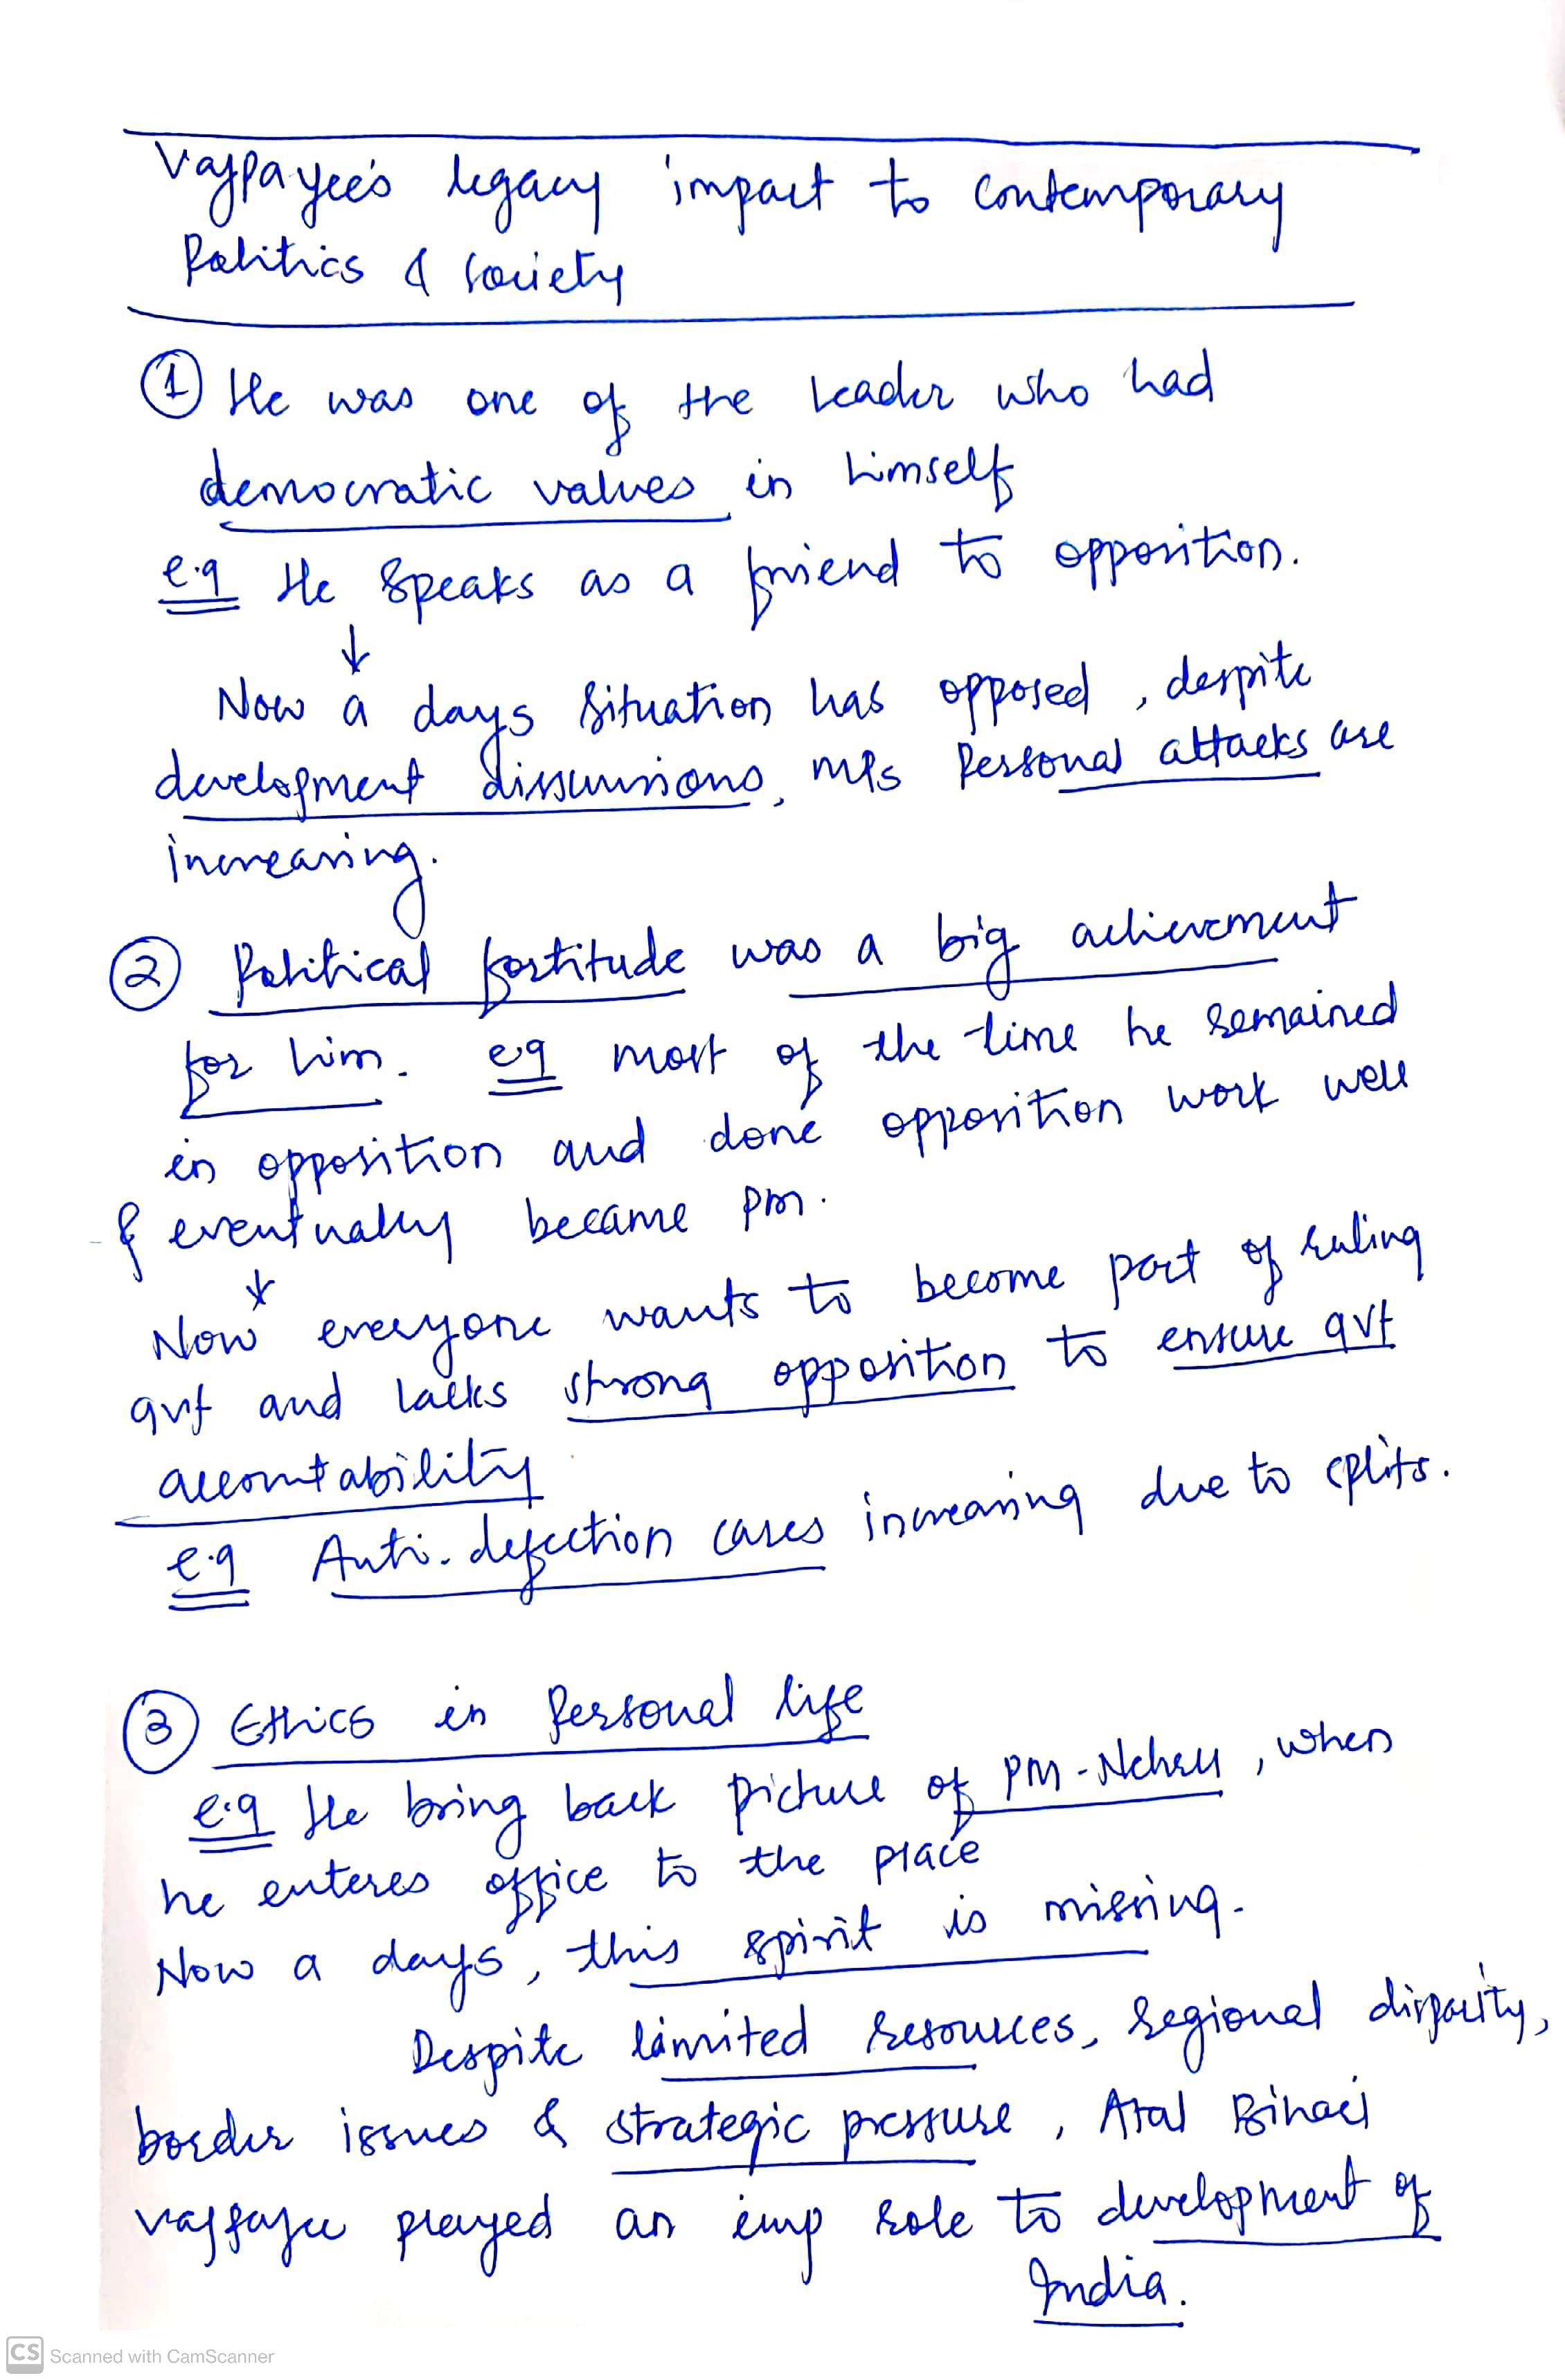 Vajpayee's legacy impact to contemporary
Politics & society
① He was one of the leader who had
democratic values in himself
e.g He speaks as a friend to opposition.
↓
Now a days situation has opposed, despite
development dissussions, MPs Personal attacks are
increasing.
② Political fortitude was a big achievement
for him. eg most of the time he remained
in opposition and done opposition work well
& eventually became PM.
↓
Now everyone wants to become part of ruling
gvt and lacks strong opposition to ensure gvt
accountability
e.g Anti-defection cases increasing due to splits.
③ Ethics in Personal life
e.g He bring back picture of PM-Nehru, when
he enteres office to the place
Now a days, this spirit is missing.
Despite limited resources, regional disparity,
border issues & strategic pressure, Atal Bihari
Vajpayee played an imp role to development of
India.
CS Scanned with CamScanner